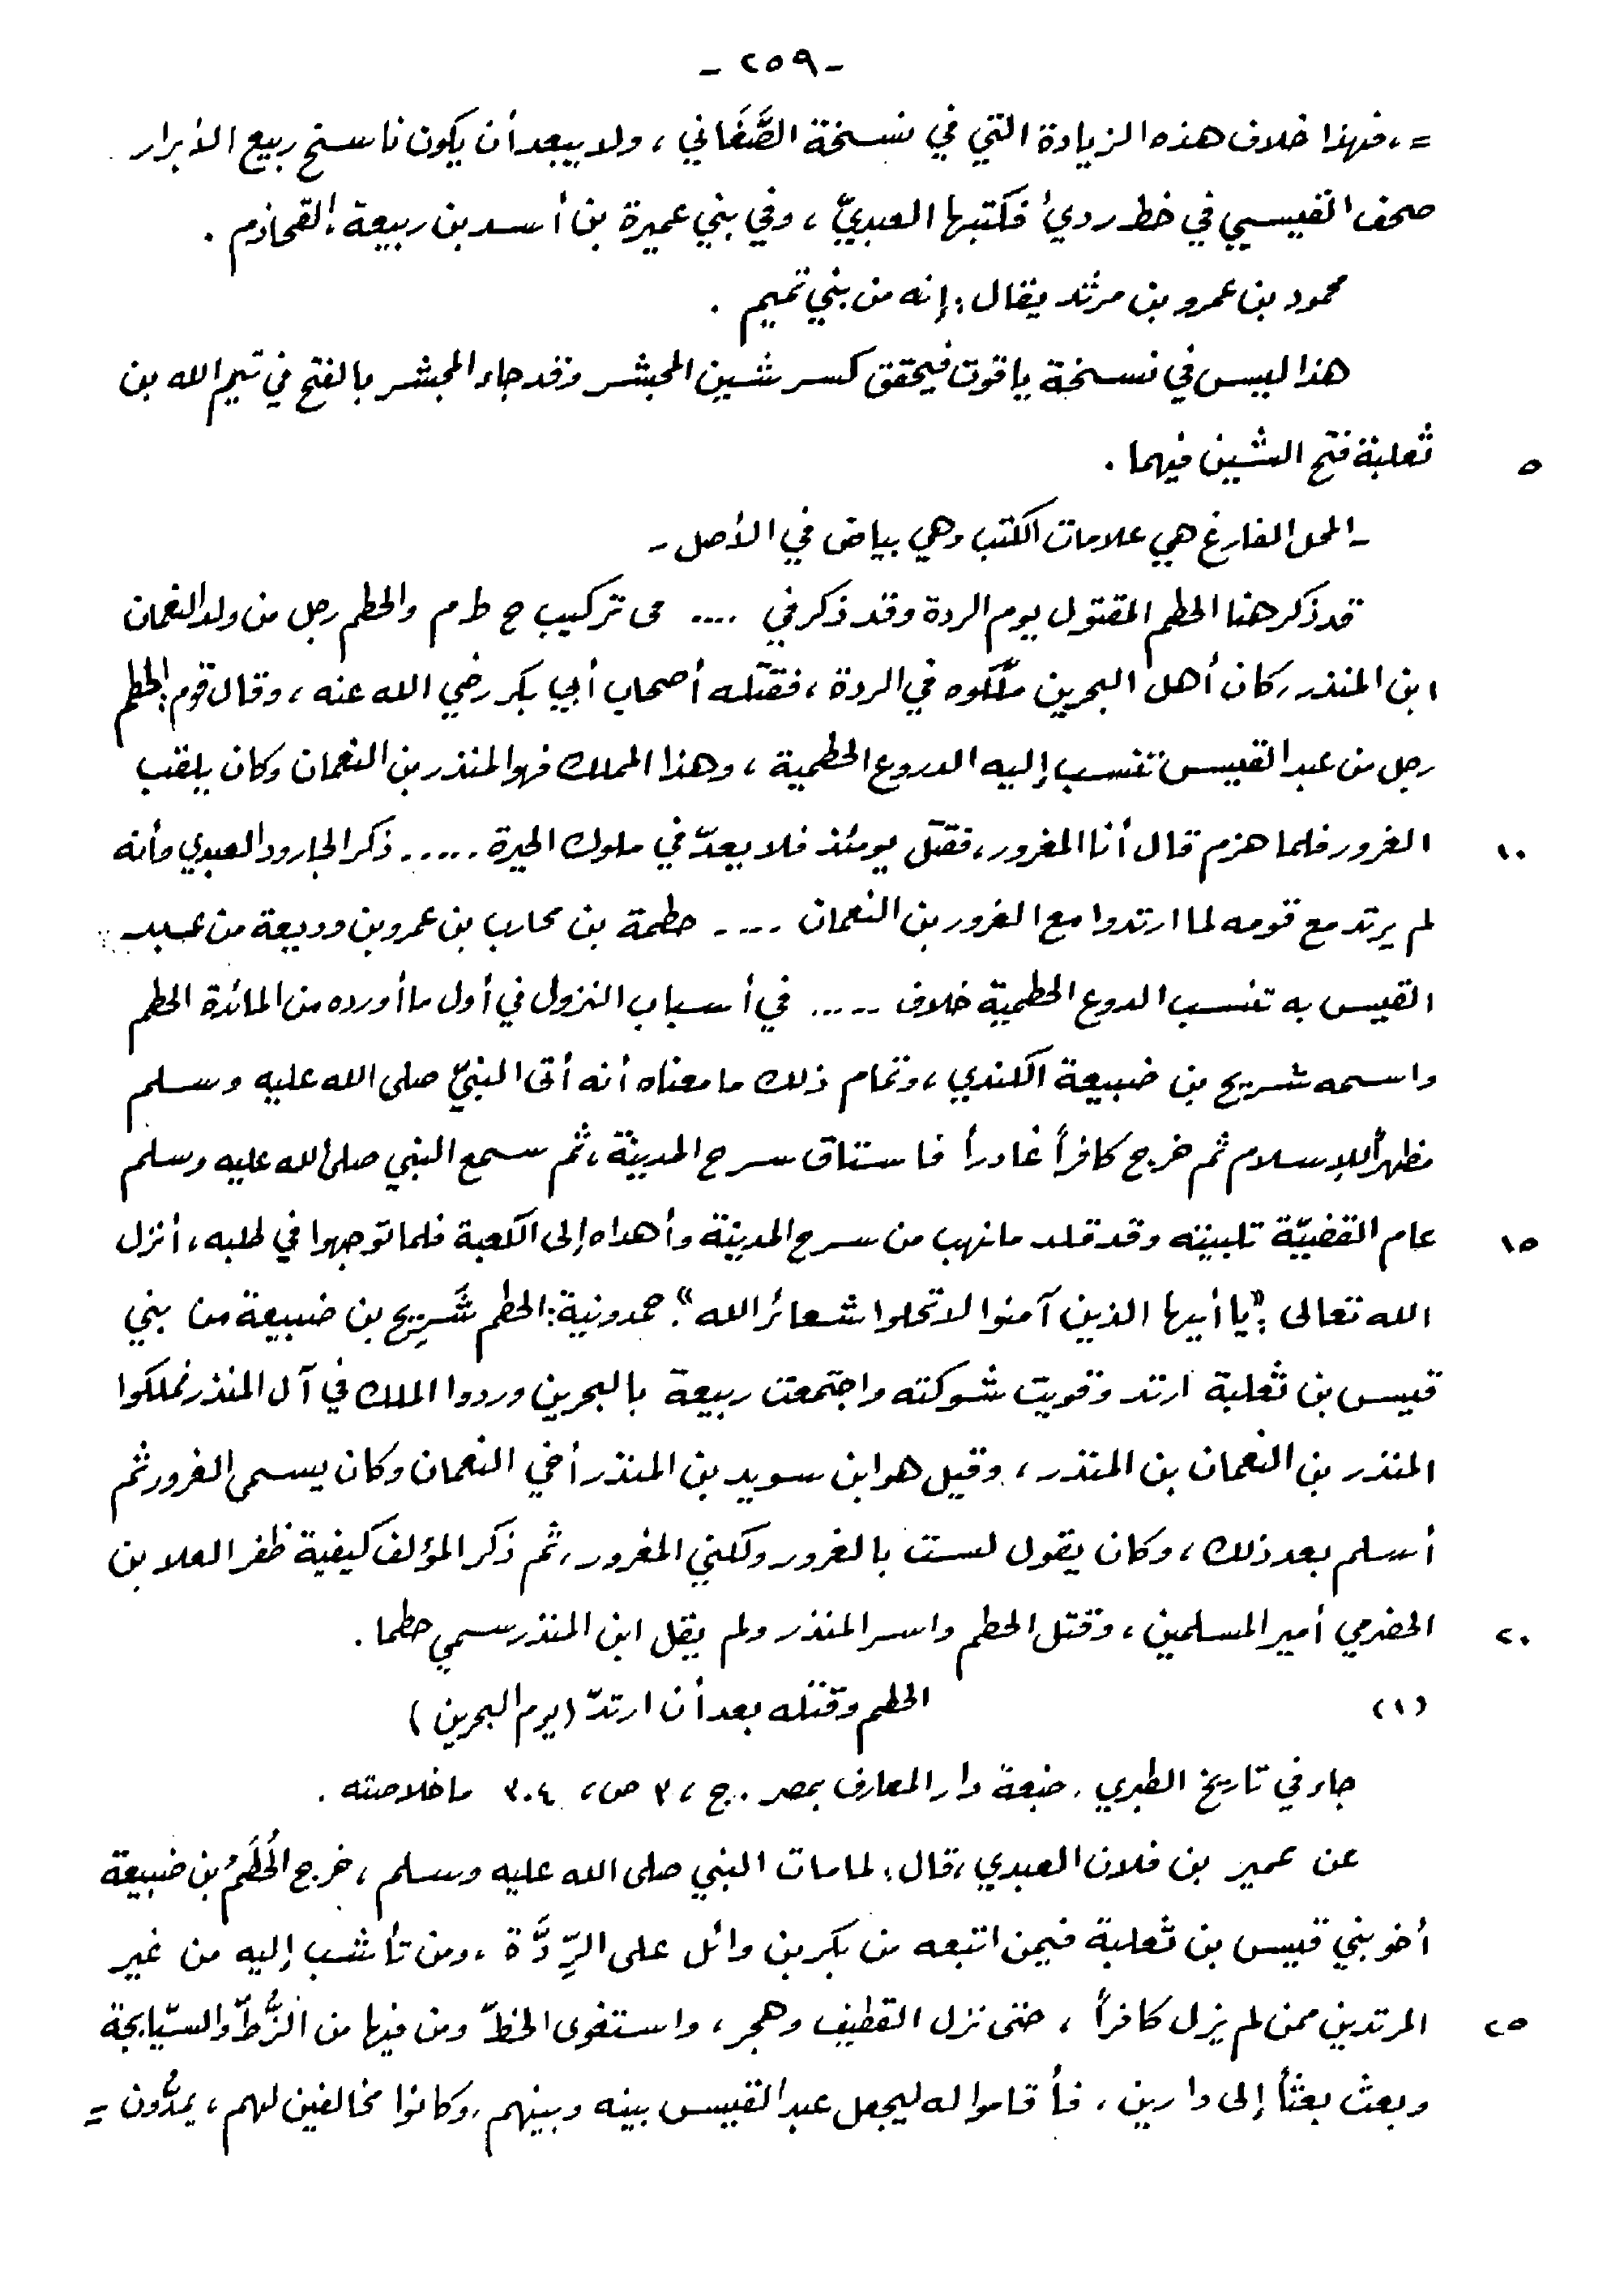 - ٢٥٩ -
= ، فهذا خلاف هذه الزيادة التي في نسخة الصَّغَاني ، ولا يبعد أن يكون ناسخ ربيع الأبرار
صحف القيسي في خط ردئ فكتبها العبديّ ، وفي بني عميرة بن أسد بن ربيعة ، القحاذم .
محمود بن عمرو بن مرثد يقال : إنه من بني تميم .
هذا ليس في نسخة ياقوت فيحقق كسر شين المجشر وقد جاء المجشر بالفتح في تيم الله بن
ثعلبة فتح الشين فيهما .
٥
- المحل الفارغ هي علامات الكتب وهي بياض في الأصل -
قد ذكر هنا الحطم المقتول يوم الردة وقد ذكر في .... فى تركيب ح ط م والحطم رجل من ولد النعمان
ابن المنذر ركان أهل البحرين ملَّكوه في الردة ، فقتله أصحاب أبي بكر رضي الله عنه ، وقال قوم : الحطم
رجل من عبد القيس تنسب إليه الدروع الحطمية ، وهذا المملك فهو المنذر بن النعمان وكان يلقب
الغرور فلما هزم قال أنا المغرور ، فقتل يومئذ فلا يعدّ في ملوك الحيرة ..... ذكر الجارود العبدي وأنه
١٠
لم يرتد مع قومه لما ارتدوا مع الغرور بن النعمان .... حطمة بن محارب بن عمرو بن وديعة من عبد
القيس به تنسب الدروع الحطمية خلاف ..... في أسباب النزول في أول ما أورده من المائدة الحطم
واسمه شريح بن ضبيعة الكندي ، وتمام ذلك ما معناه أنه أتى النبيّ صلى الله عليه وسلم
مظهراً للإسلام ثم خرج كافراً غادراً فاستاق سرح المدينة ، ثم سمع النبي صلى الله عليه وسلم
عام القضيّة تلبيته وقد قلد ما نهب من سرح المدينة وأهداه إلى الكعبة فلما توجهوا في طلبه ، أنزل
١٥
الله تعالى : " يا أيها الذين آمنوا لا تحلوا شعائر الله " . حمدونية : الحطم شَرِيح بن ضبيعة من بني
قيس بن ثعلبة ارتد وقويت شوكته واجتمعت ربيعة بالبحرين وردوا الملك في آل المنذر فملكوا
المنذر بن النعمان بن المنذر ، وقيل هو ابن سويد بن المنذر أخي النعمان وكان يسمى الغرور ثم
أسلم بعد ذلك ، وكان يقول لست بالغرور ولكني المغرور ، ثم ذكر المؤلف كيفية ظفر العلا بن
الحضرمي أمير المسلمين ، وقتل الحطم واسر المنذر ولم يقل ابن المنذر سمي حطما .
٢٠
(١) الحطم وقتله بعد أن ارتدّ ( يوم البحرين )
جاء في تاريخ الطبري . ضبعة دار المعارف بمصر . ج ، ٣ ص ، ٣٠٤ ما خلاصته .
عن عمير بن فلان العبدي ، قال : لما مات النبي صلى الله عليه وسلم ، خرج الحُطَمُ بن ضبيعة
أخو بني قيس بن ثعلبة فيمن اتبعه من بكر بن وائل على الرِّدَّة ، ومن تأشب إليه من غير
المرتدين ممن لم يزل كافراً ، حتى نزل القطيف وهجر ، واستغوى الخطّ ومن فيها من الزُّطّ والسيّابجة
٢٥
وبعث بعثاً إلى دارين ، فأقاموا له ليجعل عبد القيس بينه وبينهم ، وكانوا مخالفين لهم ، يمدُّون =